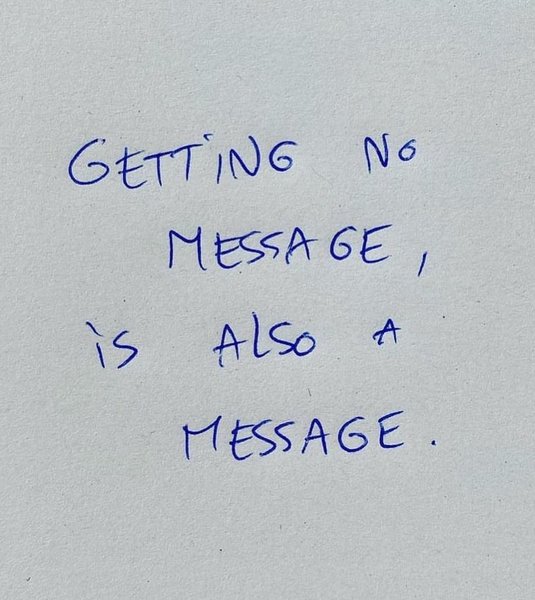 GETTiNG NO
MESSAGE,
is ALSO A
MESSAGE.